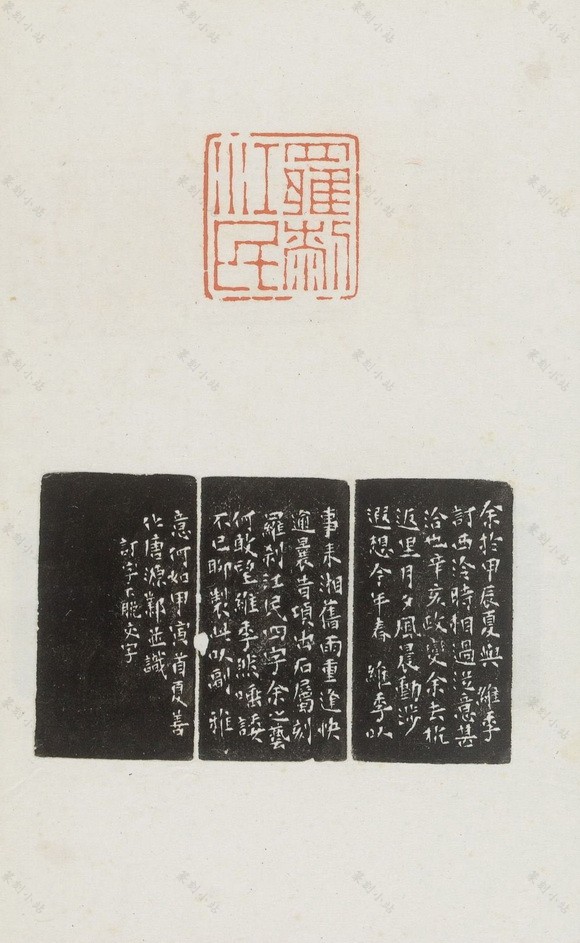 羅刹
江民
余於甲辰夏與 維季
訂西泠時相過從意甚
洽也辛亥政變余去杭
返里月夕風晨動涉
遐想今年春 維季以
事來湘舊雨重逢快
逾曩昔項出石屬刻
羅刹江民四字余之藝
何敢望維季然諈諉
不已聊製此以副 雅
意何如甲寅首夏善
化唐源鄴並識
訂字下脫交字
篆刻小站